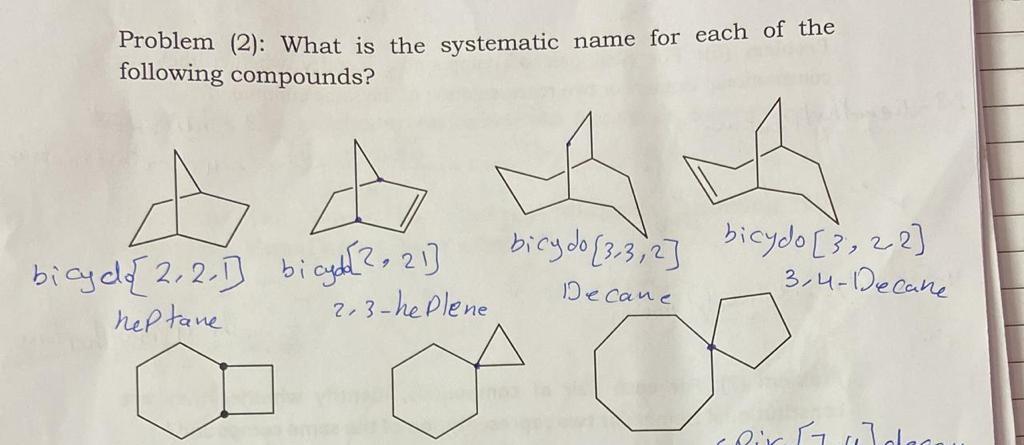 Problem (2): What is the systematic name for each of the
following compounds?
bicyclo[2,2,1]
heptane
bicyclo[2,21]
2,3-heplene
bicyclo[3,3,2]
Decane
bicyclo[3,22]
3,4-Decane